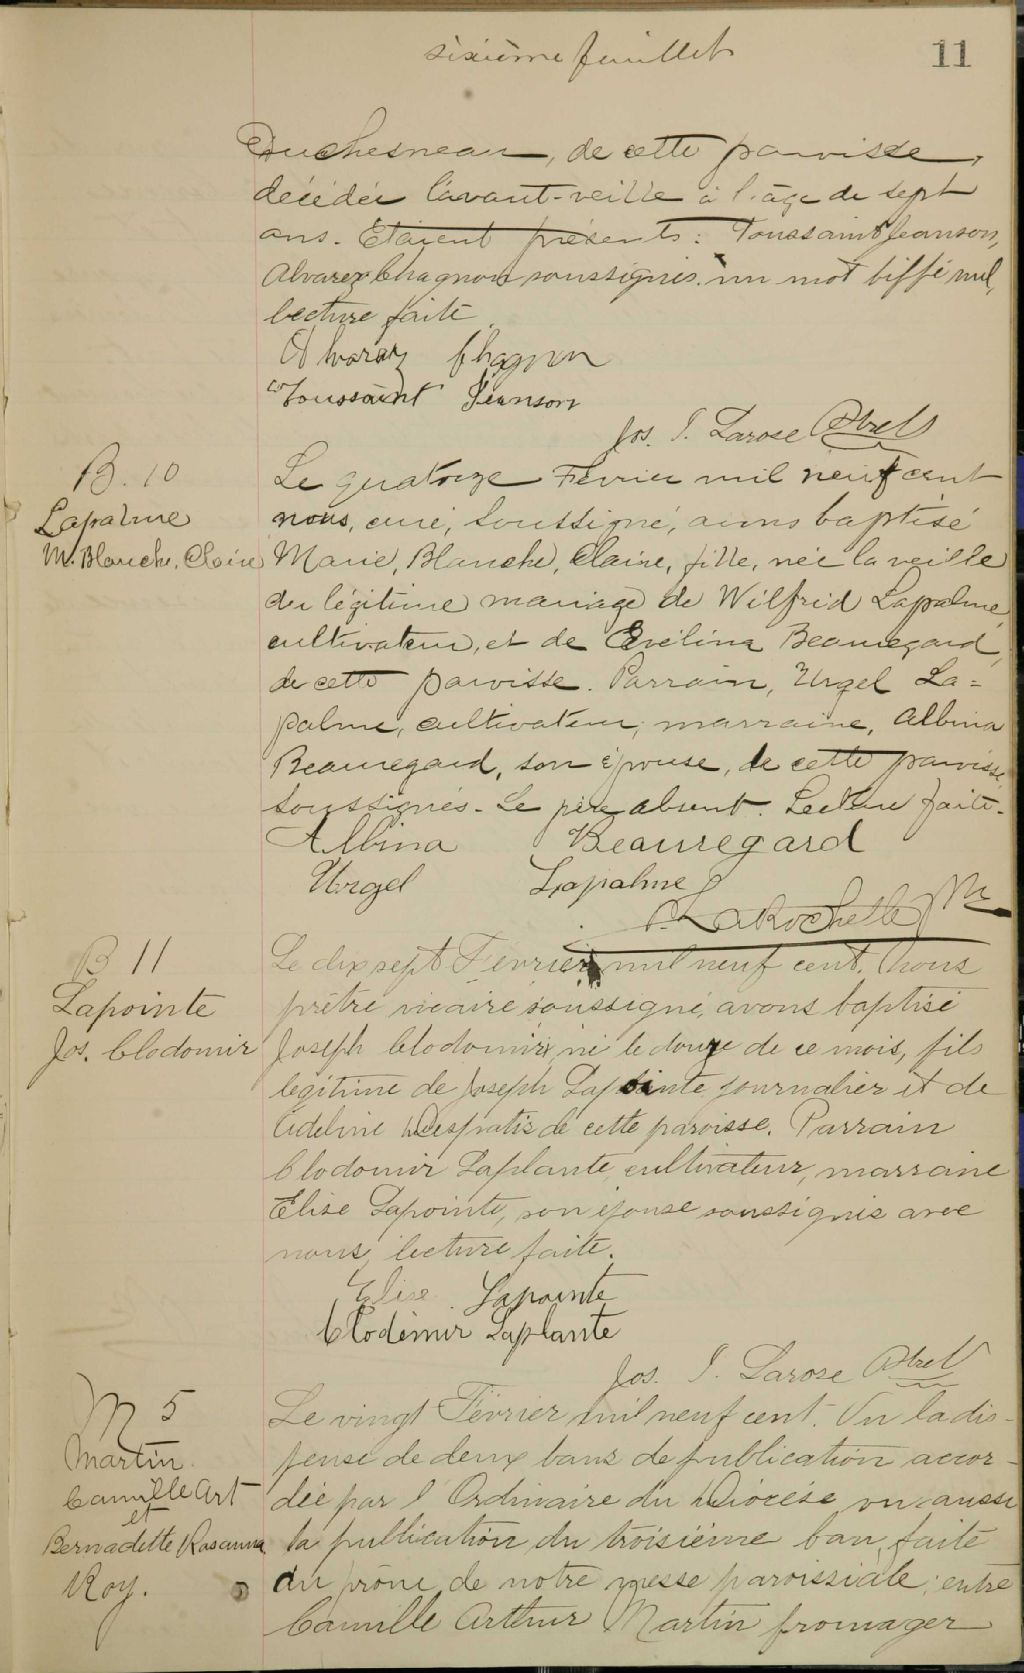 sixième feuillet
11
Duchesneau, de cette paroisse,
décédée l'avant-veille à l'âge de sept
ans. Etaient présents: Toussaint Jeanson,
Alvarez Chagnon soussignés. un mot biffé nul,
lecture faite.
Alvarez Chagnon
Toussaint Jeanson
Jos. I. Larose Ptre
B. 10
Lapalme
M. Blanche, Claire
Le quatorze Février mil neuf cent
nous, curé, soussigné, avons baptisé
Marie, Blanche, Claire, fille, née la veille
du légitime mariage de Wilfrid Lapalme,
cultivateur, et de Evélina Beauregard,
de cette paroisse. Parrain, Urgel La=
palme, cultivateur, marraine, Albina
Beauregard, son épouse, de cette paroisse,
soussignés. Le père absent. Lecture faite.
Albina Beauregard
Urgel Lapalme
LaRochelle Ptre
B 11
Lapointe
Jos. Clodomir
Le dix sept Février mil neuf cent. Nous
prêtre vicaire soussigné, avons baptisé
Joseph Clodomir, né le douze de ce mois, fils
légitime de Joseph Lapointe journalier et de
Adeline Despatis de cette paroisse. Parrain
Clodomir Laplante, cultivateur, marraine
Elise Lapointe, son épouse soussignés avec
nous, lecture faite.
Elise Lapointe
Clodómir Laplante
Jos. I. Larose Ptre
M 5
Martin
Camille Art
et
Bernadette Rosanna
Roy.
Le vingt Février mil neuf cent. Vu la dis-
pense de deux bans de publication accor-
dée par l'Ordinaire du Diocèse vu aussi
la publication du troisième ban, faite
au prône de notre messe paroissiale, entre
Camille Arthur Martin fromager